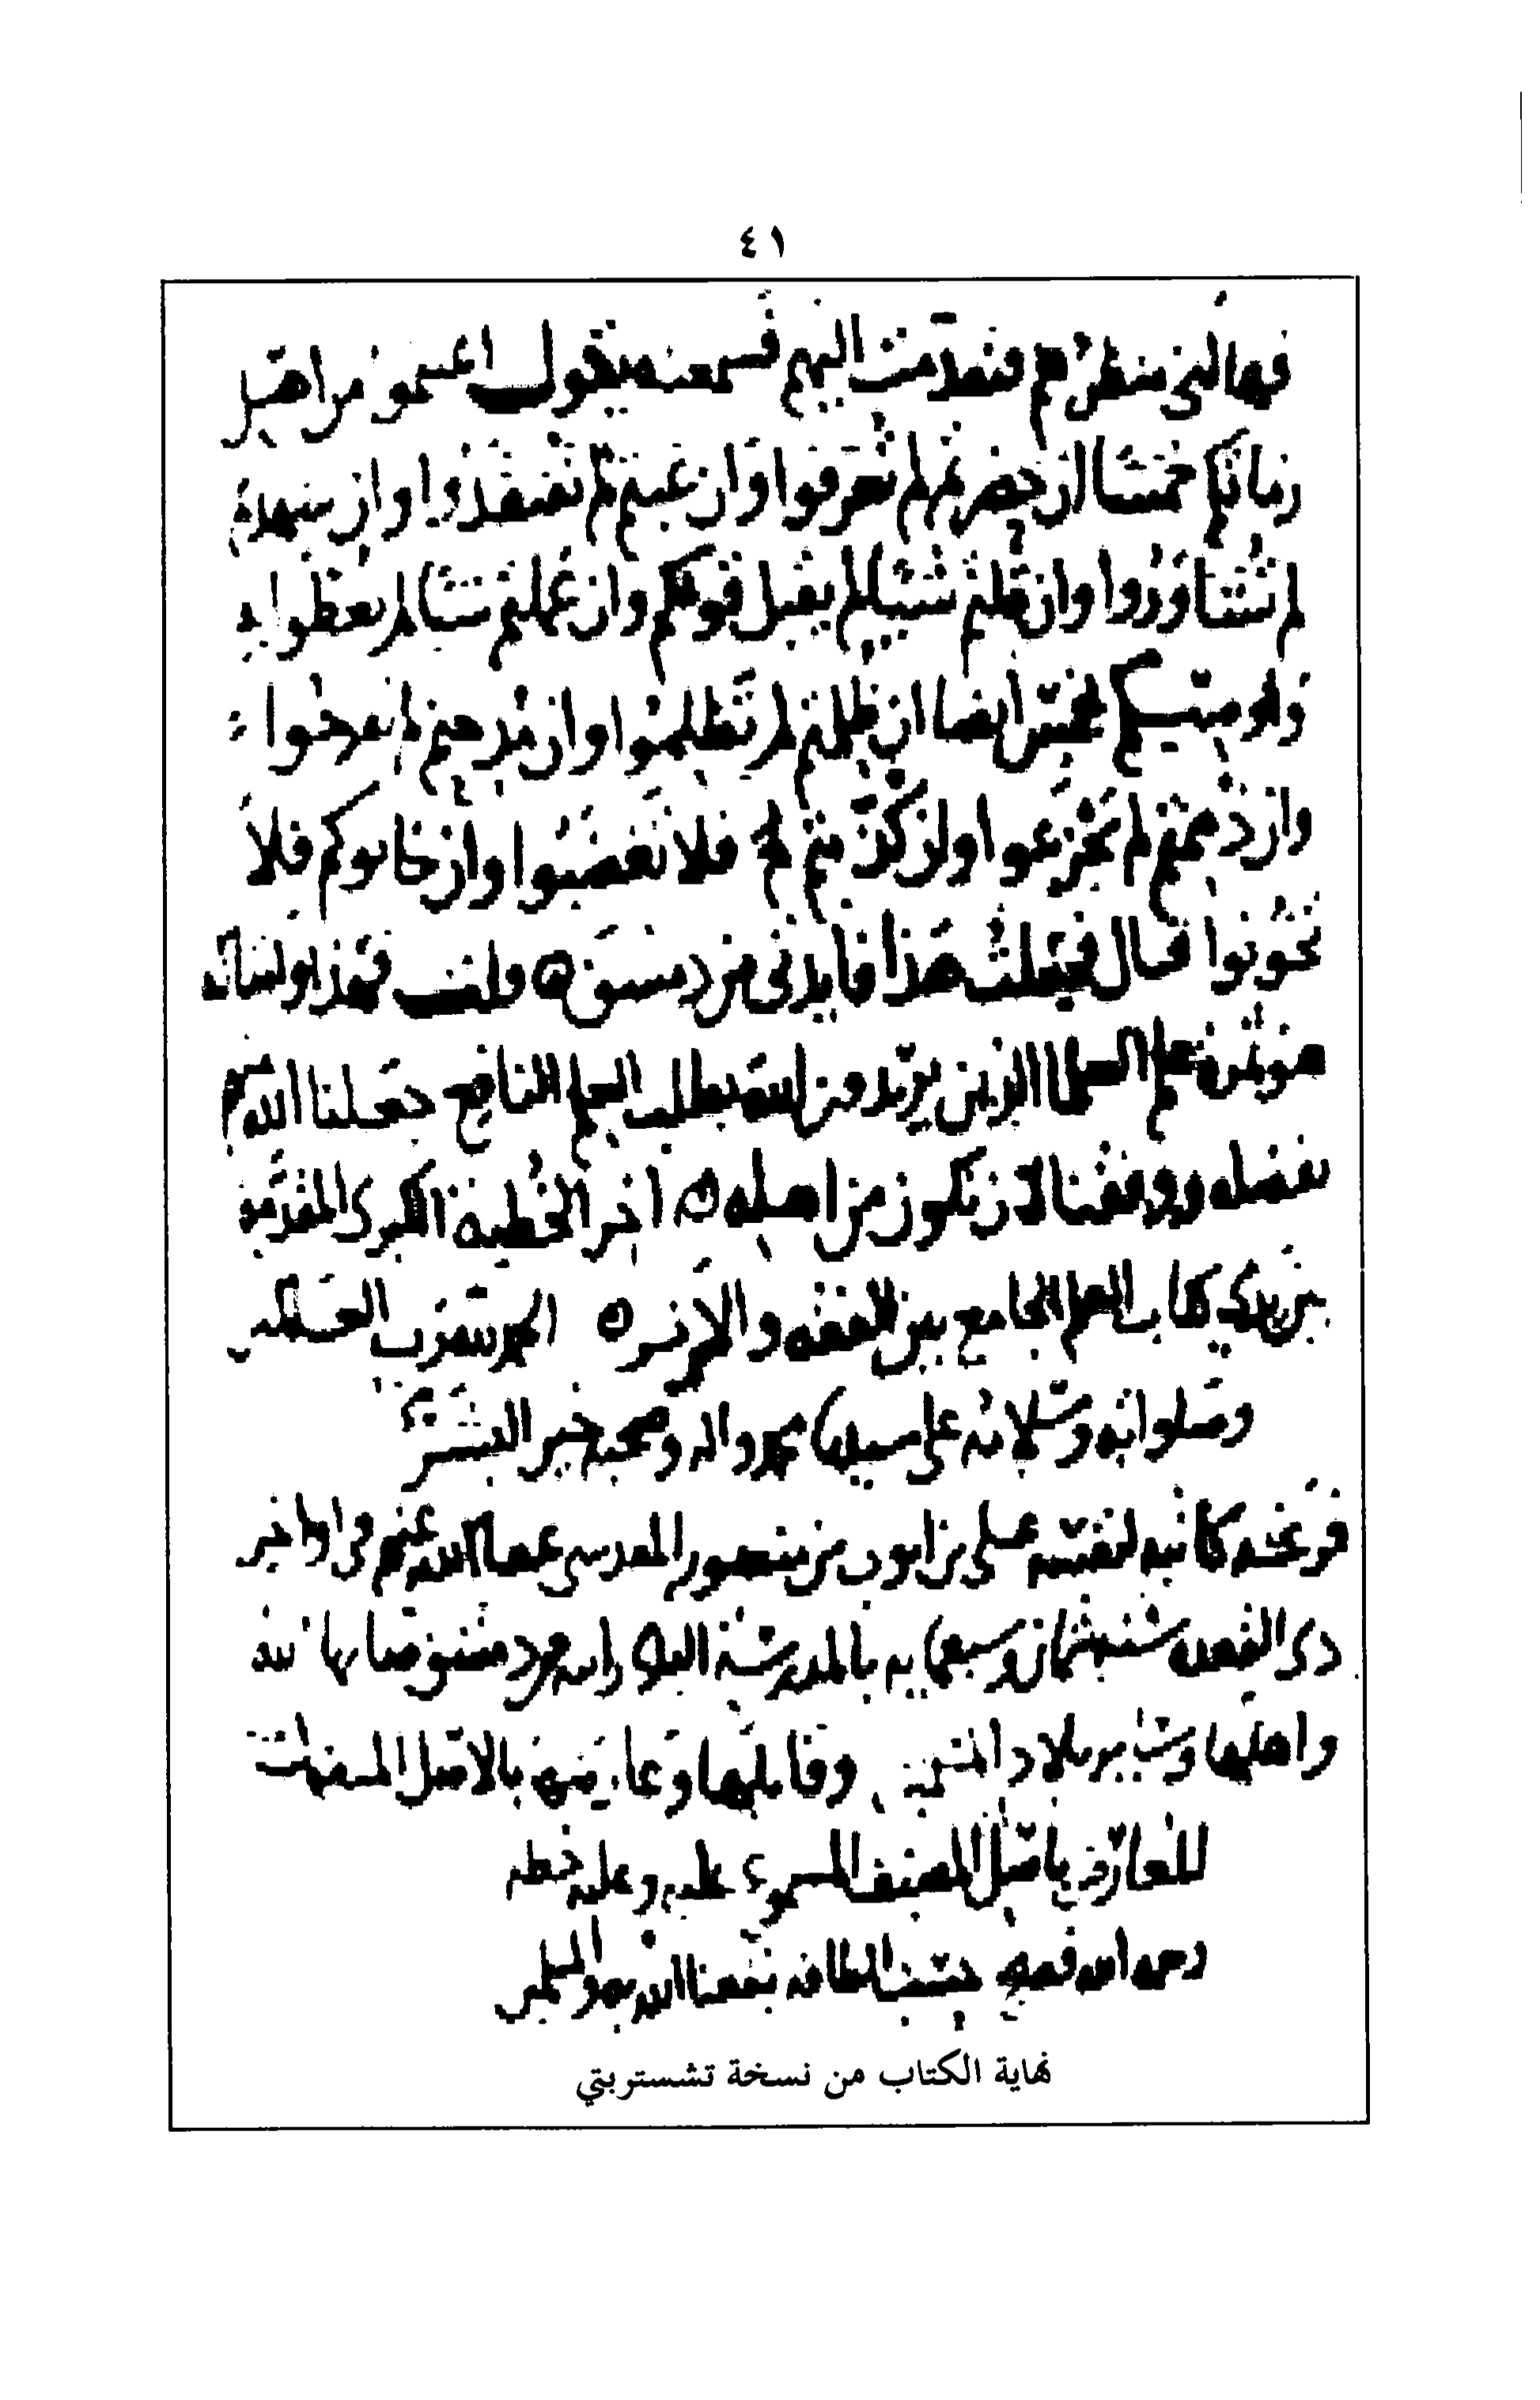 ٤١
فهالني منظرهم فتقدمت اليهم فسمعته يقول اغتنموا من اهل
زمانكم خمسا ان حضرتم لم تعرفوا وان غبتم لم تفتقدوا وان شهدتم
لم تشاوروا وان قلتم شيئا لم يقبل قولكم وان عملتم شيئا لم تعطوا به
واوصيكم بخمس ايضا ان ظلمتم لم تظلموا وان مدحتم لم تفرحوا
وان ذممتم لم تجزعوا وان كذبتم فلا تغضبوا وان خانوكم فلا
تخونوا قال فجعلت هذا فايدتي من دمشق ه ولنت فهذا
العلما الذين يريدون الله بطلب العلم النافع جعلنا الله
بفضله ووفقنا لان نكون من اهله ه اخر الخطبة الكبرى المقدمة
بين يدي كتاب العلم الجامع بين الفقه والاثر ه الحمد لله رب العالمين
وصلواته وسلامه على سيدنا محمد واله وصحبه خير البشر
فرغ منه كاتبه لنفسه علي بن ايوب بن منصور المقدسي عفا الله عنهم في اواخر
ذي القعدة سنة ثمان وسبعماية بالمدرسة البادرايية دمشق صانها الله
واهلها وساير بلاد وقابلها بالاصل
باصل المصنف المسموع عليه وعليه خطه
رحمه الله فصح حسب الطاقة نفعنا الله به والمسلمين
نهاية الكتاب من نسخة تشستربتي